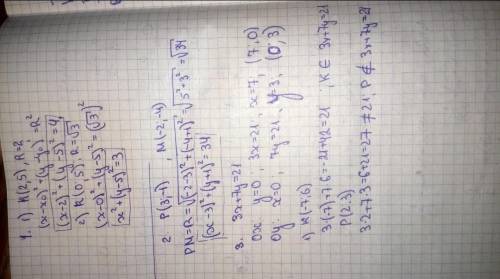 1. 1) K(2;5), R=2
(x-x₀)²+(y-y₀)²=R²
(x-2)²+(y-5)²=4,
2) K(0;5), R=√3
(x-0)²+(y-5)²=(√3)²
x²+(y-5)²=3
2 P(3;-1), M(-2;-4)
PM=R=√(-2-3)²+(-4+1)²=√5²+3²=√34
(x-3)²+(y+1)²=34
3. 3x+7y=21
Ox: y=0; 3x=21, x=7, (7,0)
Oy: x=0; 7y=21, y=3, (0;3)
1) K(-7;6)
3·(-7)+7·6=-21+42=21, K∈ 3x+7y=21
P(2;3)
3·2+7·3=6+21=27≠21, P∉ 3x+7y=21